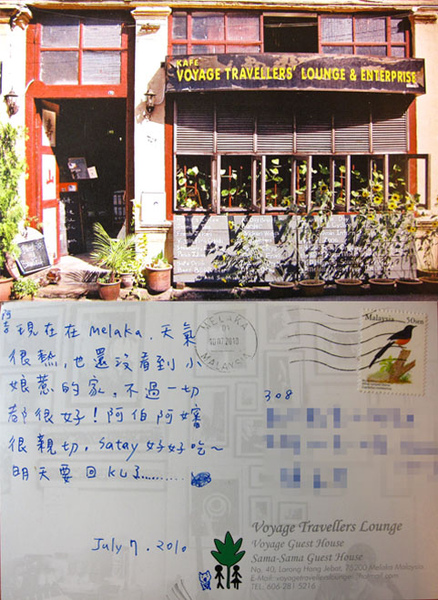 KAFE
VOYAGE TRAVELLERS' LOUNGE & ENTERPRISE
山
現在在 Melaka. 天氣
很熱,也還沒看到小
娘惹的家,不過一切
都很好!阿伯阿嬸
很親切. Satay 好好吃~
明天要回 KL 了..........
July 7. 2010
MELAKA
MALAYSIA
Malaysia 50sen
308
Voyage Travellers Lounge
Voyage Guest House
Sama-Sama Guest House
No. 40, Lorong Hang Jebat, 75200 Melaka Malaysia.
TEL: 606 281-5216